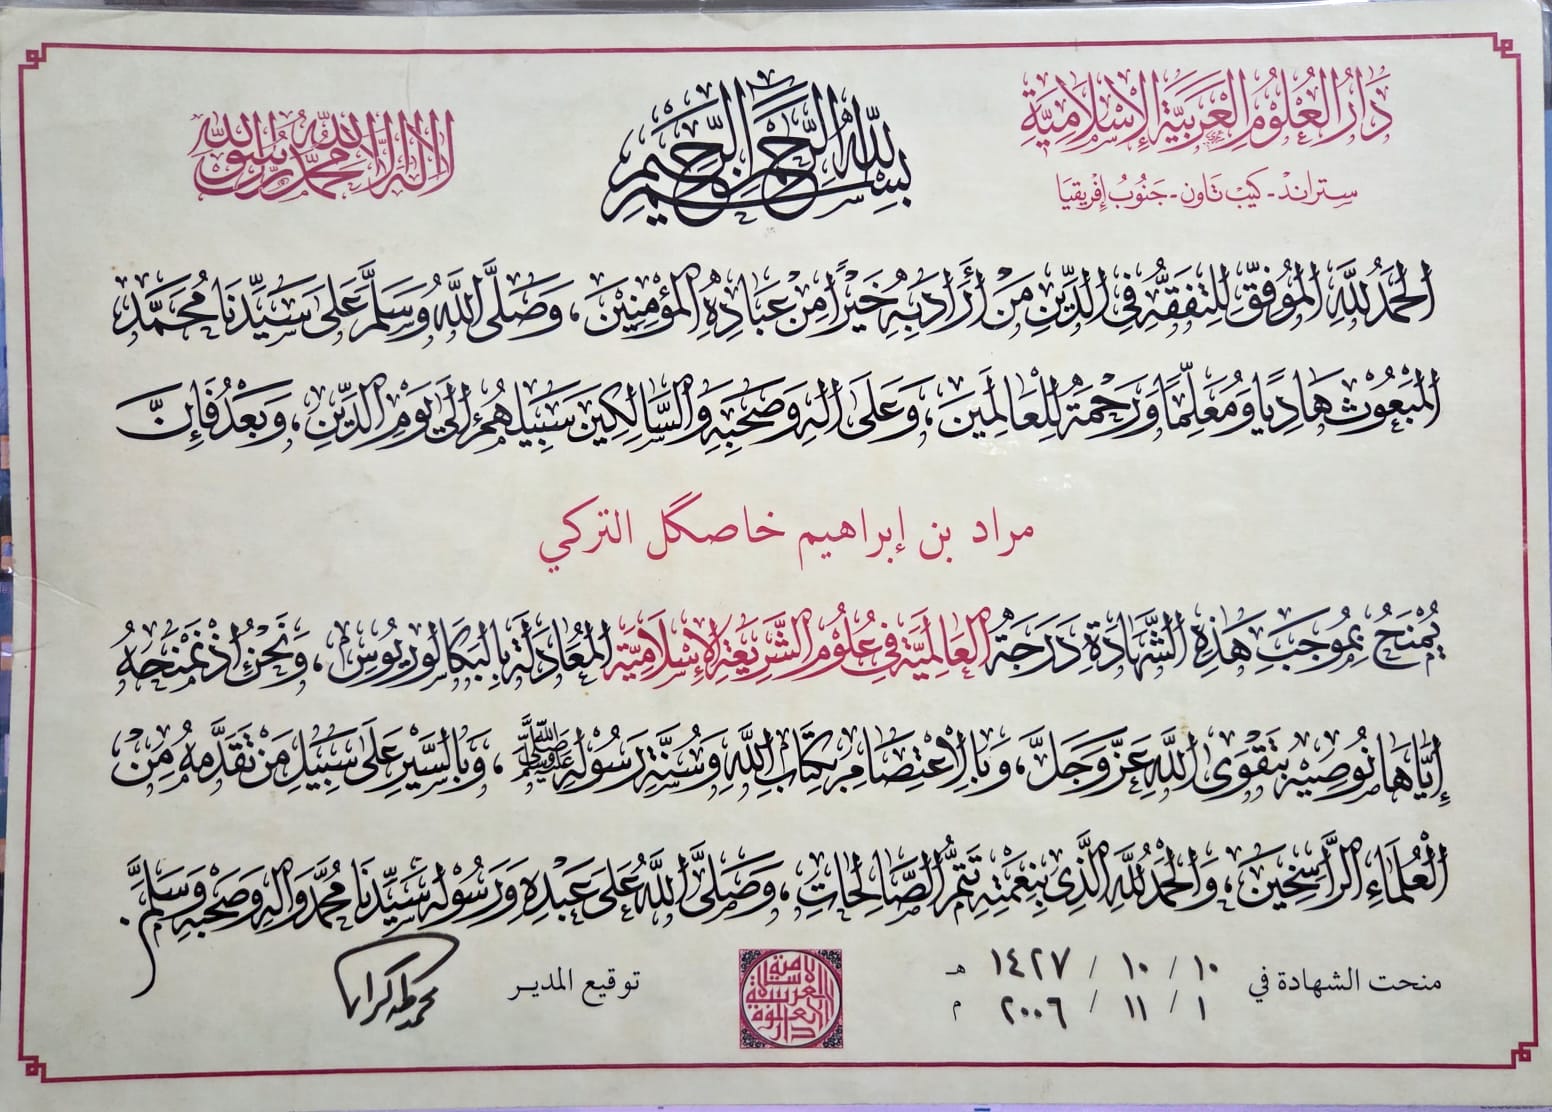 دَارُ الْعُلُومِ الْعَرَبِيَّةِ الْإِسْلَامِيَّةِ
ستراند - كيب تاون - جنوب إفريقيا
بسم الله الرحمن الرحيم
لا إله إلا الله محمد رسول الله
الحَمْدُ لِلَّهِ المُوَفِّقِ لِلتَّفَقُّهِ فِي الدِّينِ مَنْ أَرَادَ بِهِ خَيْرًا مِنْ عِبَادِهِ المُؤْمِنِيْنَ، وَصَلَّى اللَّهُ وَسَلَّمَ عَلَى سَيِّدِنَا مُحَمَّدٍ
المَبْعُوْثِ هَادِيًا وَمُعَلِّمًا وَرَحْمَةً لِلْعَالَمِينَ، وَعَلَى آلِهِ وَصَحْبِهِ وَالسَّالِكِينَ سَبِيلَهُمْ إِلَى يَوْمِ الدِّينِ، وَبَعْدُ فَإِنَّ
مراد بن إبراهيم خاصگل التركي
يُمْنَحُ بِمُوجَبِ هَذِهِ الشَّهَادَةِ دَرَجَةُ العَالِمِيَّةِ فِي عُلُومِ الشَّرِيْعَةِ الإِسْلَامِيَّةِ المُعَادَلَةِ بِالبَكَالُورْيُوسِ، وَنَحْنُ إِذْ نَمْنَحُهُ
إِيَّاهَا نُوصِيهِ بِتَقْوَى اللَّهِ عَزَّ وَجَلَّ، وَبِالاعْتِصَامِ بِكِتَابِ اللَّهِ وَسُنَّةِ رَسُوْلِهِ ﷺ، وَبِالسَّيْرِ عَلَى سَبِيْلِ مَنْ تَقَدَّمَهُ مِنْ
الْعُلَمَاءِ الرَّاسِخِيْنَ، وَالحَمْدُ لِلَّهِ الَّذِي بِنِعْمَتِهِ تَتِمُّ الصَّالِحَاتِ، وَصَلَّى اللَّهُ عَلَى عَبْدِهِ وَرَسُوْلِهِ سَيِّدِنَا مُحَمَّدٍ وَآلِهِ وَصَحْبِهِ وَسَلَّمَ.
منحت الشهادة في ١٠ / ١٠ / ١٤٢٧ هـ
١ / ١١ / ٢٠٠٦ م
دار العلوم العربية الإسلامية
توقيع المدير
محمد طه كران